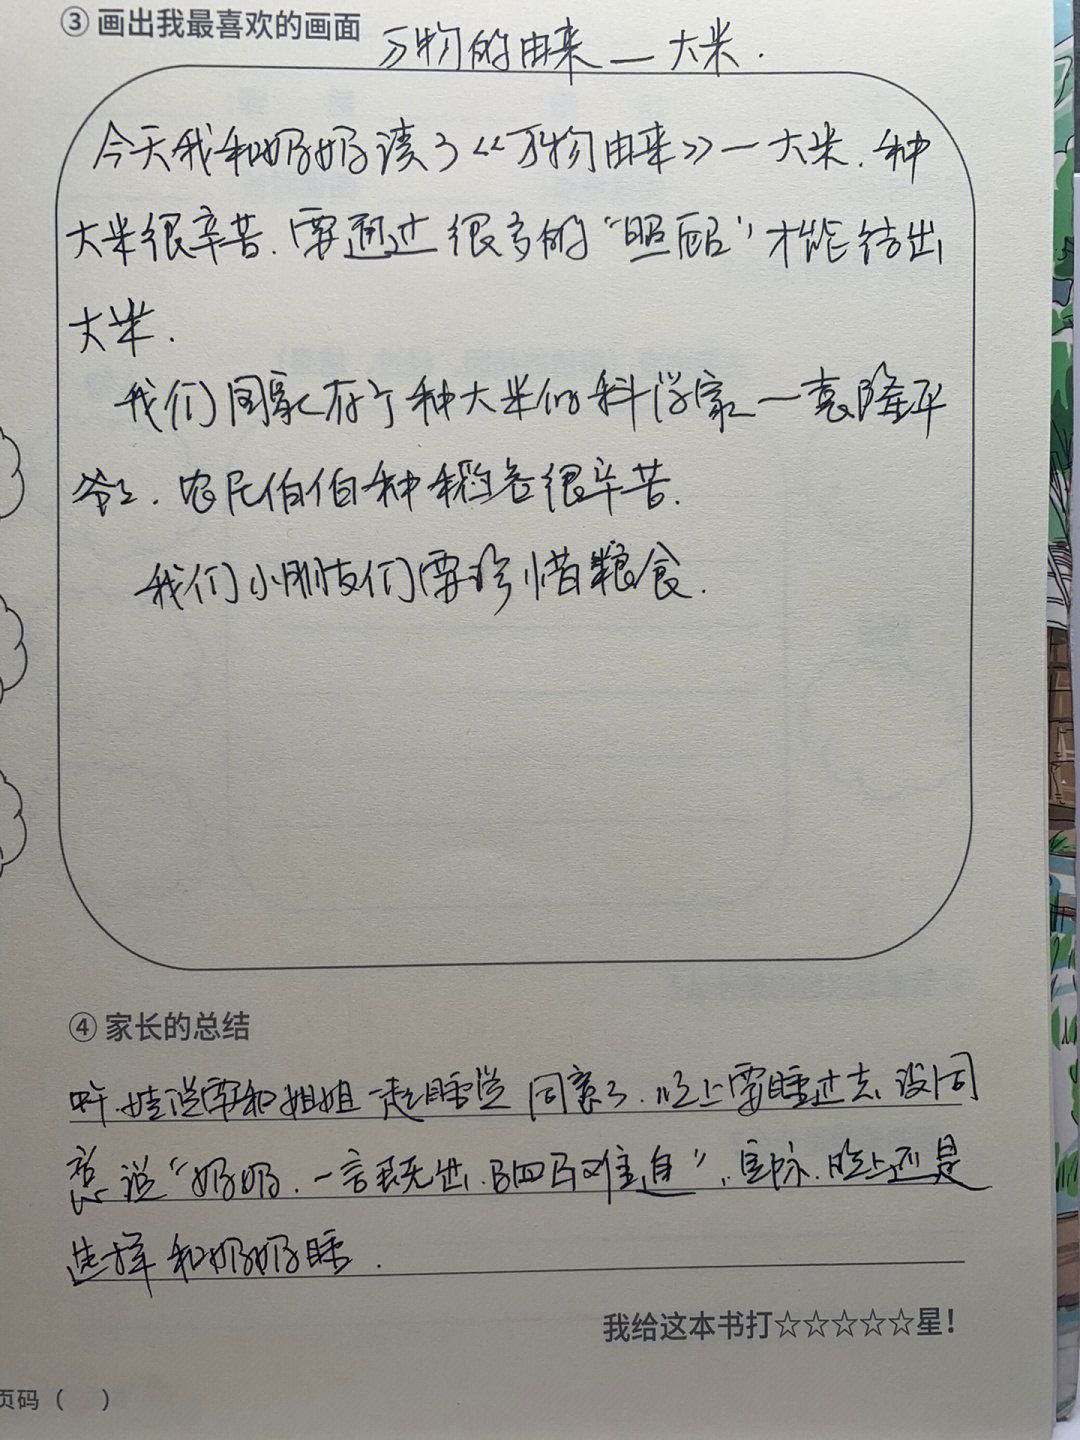 ③ 画出我最喜欢的画面
万物的由来—大米.
今天我和奶奶读了《万物由来》一大米.种
大米很辛苦.要通过很多的“照顾”才能结出
大米.
我们国家有个种大米的科学家一袁隆平
爷爷.农民伯伯种稻谷很辛苦.
我们小朋友们要珍惜粮食.
④ 家长的总结
娃说要和姐姐一起睡觉 同意了.晚上要睡过去.没同
意 说“奶奶.一言既出.驷马难追”.实际.晚上还是
选择和奶奶睡.
我给这本书打☆☆☆☆☆星！
页码（ ）